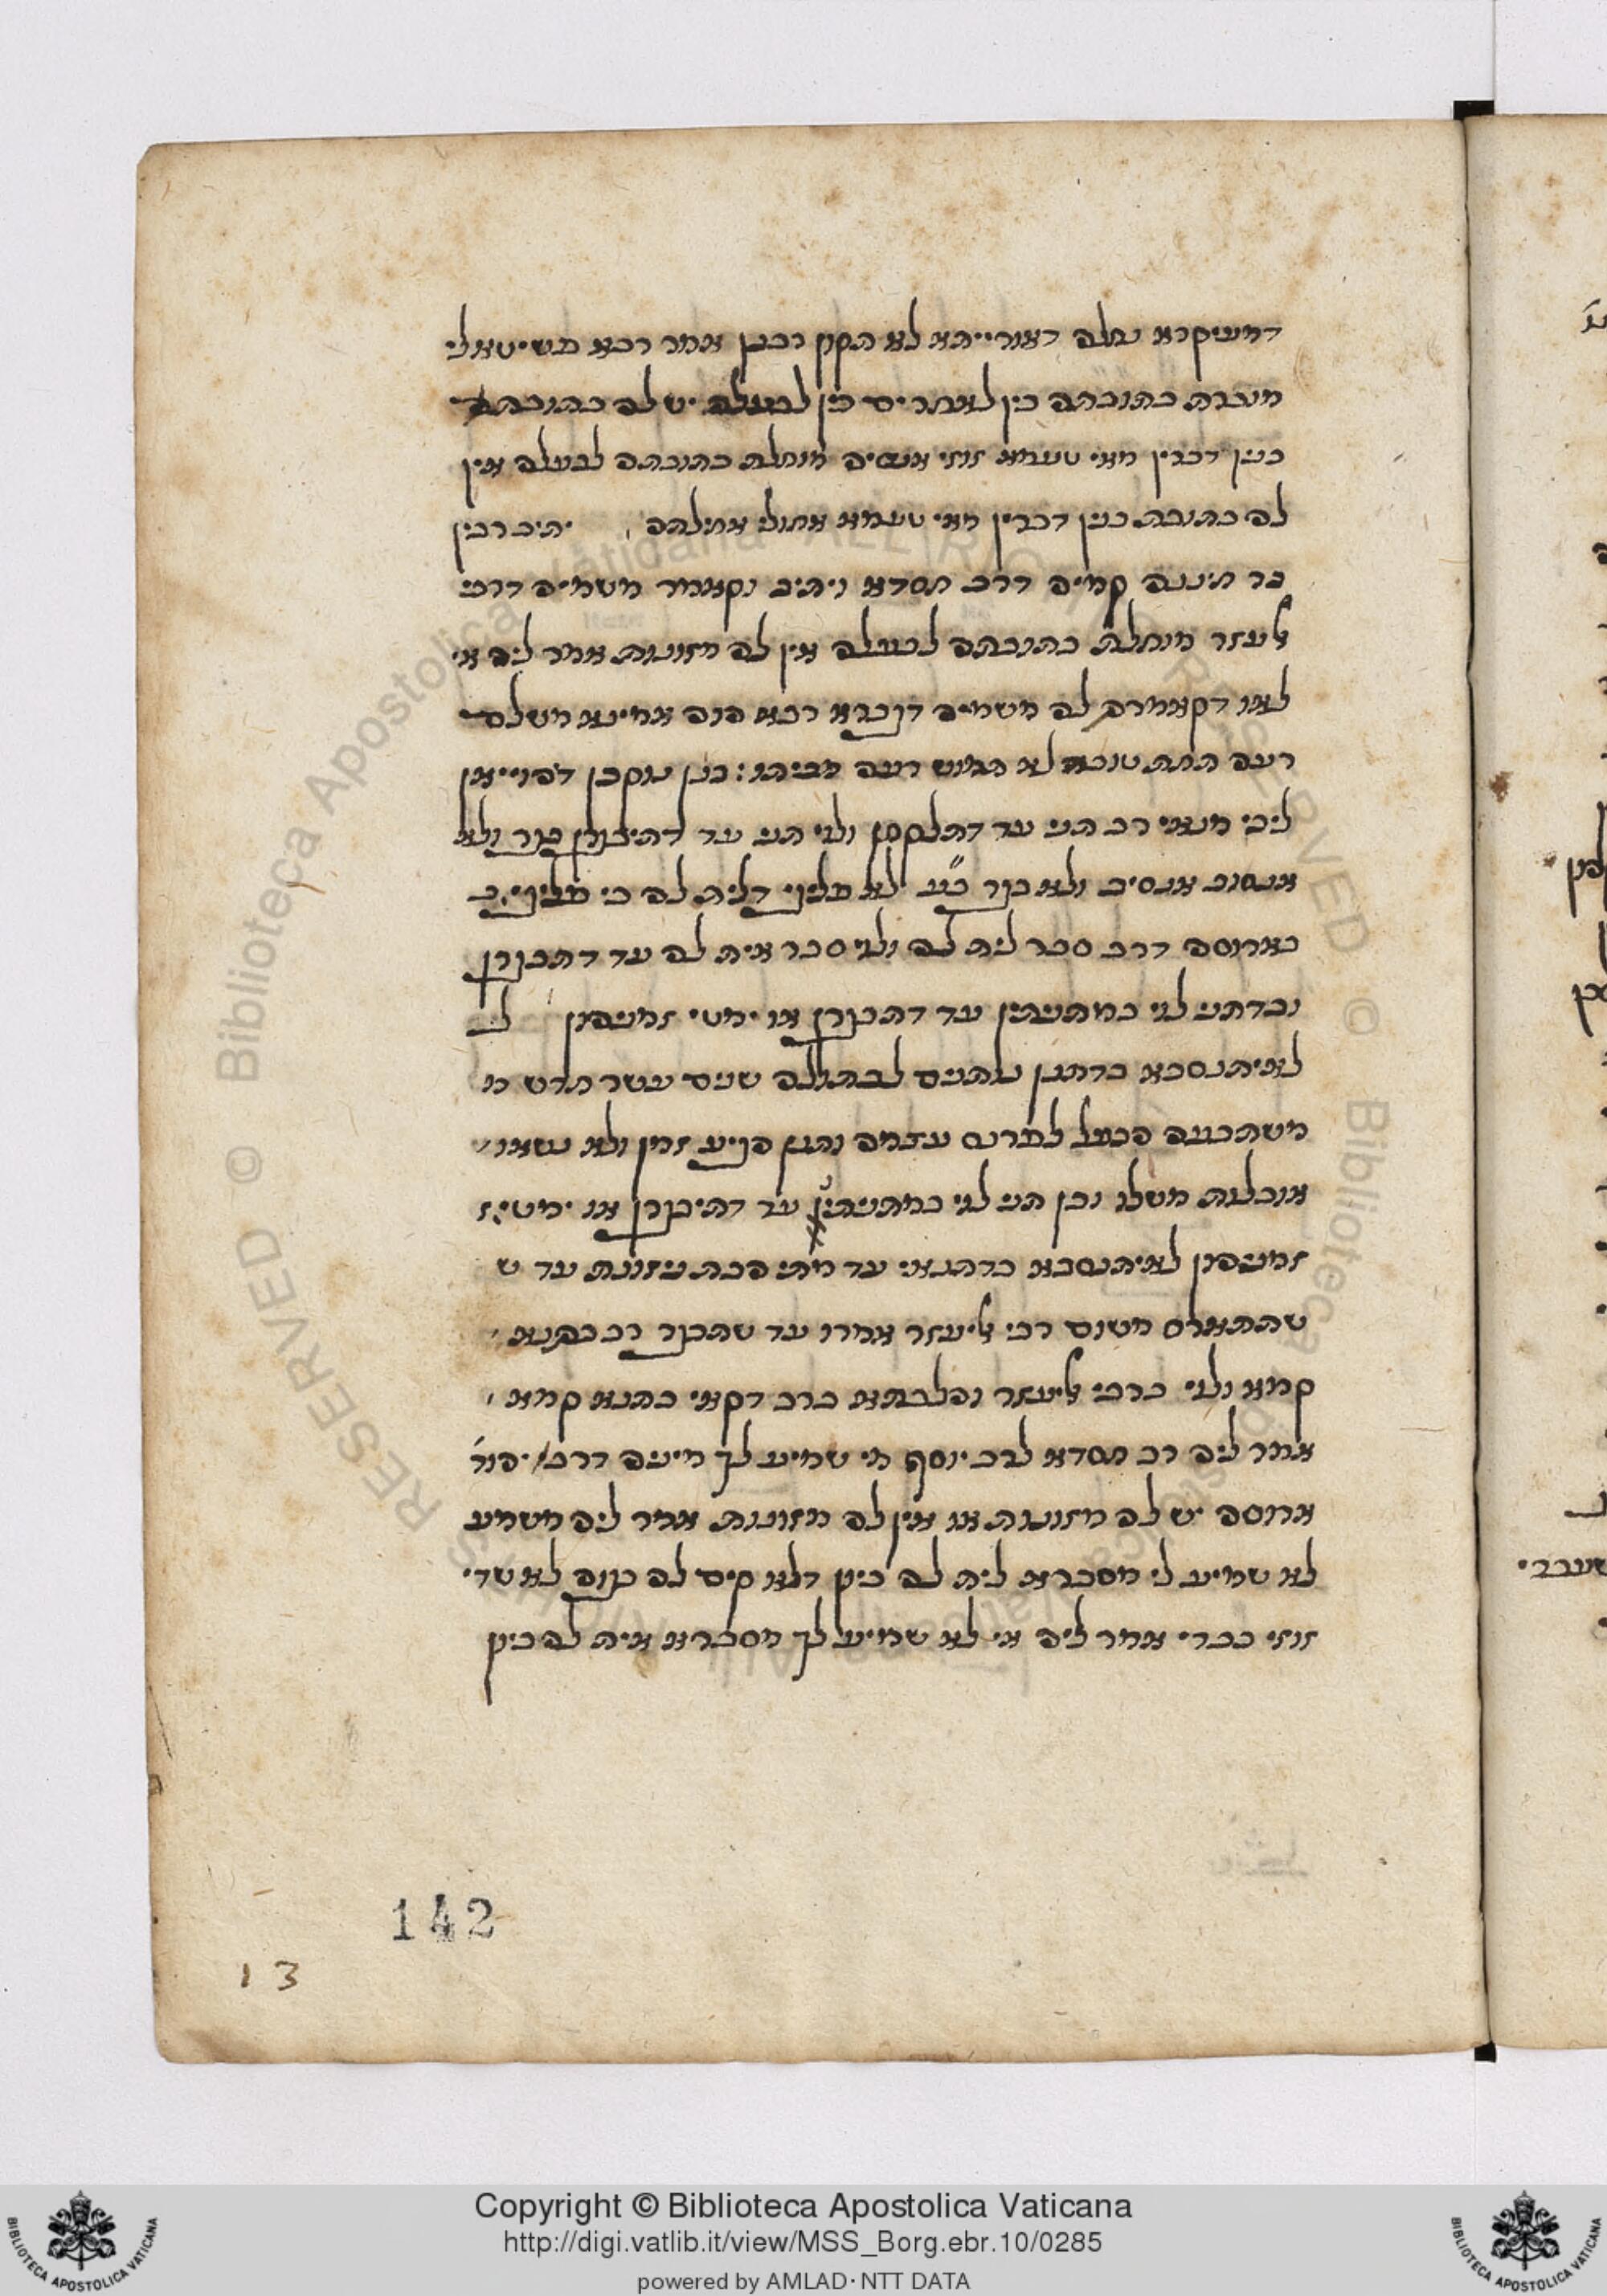 דמעיקרא נחלה דאורייתא לא תקון רבנן אמר רבא פשיטא לי
מוכרת כתובתה בין לאחרים בין לבעלה יש לה כתובת
בנין דכרין מאי טעמא זוזי אנסיה מוחלת כתובתה לבעלה אין
לה כתובת בנין דכרין מאי טעמא אחולי אחילתה יתיב רבין
בר חיננה קמיה דרב חסדא ויתיב וקאמר משמיה דרבי
אלעזר מוחלת כתובתה לבעלה אין לה מזונות אמר ליה אי
לאו דקאמרת לה משמיה דגברא רבא הוה אמינא משלם
רעה תחת טובה לא תמוש רעה מביתו בנן נוקבן דהויין
ליכי מנאי רב תני עד דתלקחן ולוי תני עד דתיבגרן בגר ולא
אנסוב אנסיב ולא בגר כ״ע לא פליגי דלית לה כי פליגי ב
בארוסה דרב סבר לית לה ולוי סבר אית לה עד דתבגרן
וכדתני לוי במתניתין עד דתבגרן או ימטי זמניהון ל
לאיתנסבא כדתנן נותנים לבתולה שנים עשר חדש מ
משתבעה הבעל לפרנס עצמה ותנן הגיע זמן ולא נשאו
אוכלות משלו וכן תני לוי במתניתין עד דתיבגרן או ימטי ז
זמניהון לאיתנסבא כדתנאי עד מתי הבת ניזונת עד ש
שתתארס משום רבי אלעזר אמרו עד שתבגר רב כתנא
קמא ולוי כרבי אלעזר והלכתא כרב דקאי כתנא קמא
אמר ליה רב חסדא לרב יוסף מי שמיע לך מיניה דרב יהוד
ארוסה יש לה מזונות או אין לה מזונות אמר ליה משמע
לא שמיע לי מסברא לית לה כיון דלא קים לה בגוה לא שדי
זוזי בכדי אמר ליה אי לא שמיע לך מסברא אית לה כיון
142
13
Copyright © Biblioteca Apostolica Vaticana
http://digi.vatlib.it/view/MSS_Borg.ebr.10/0285
powered by AMLAD · NTT DATA